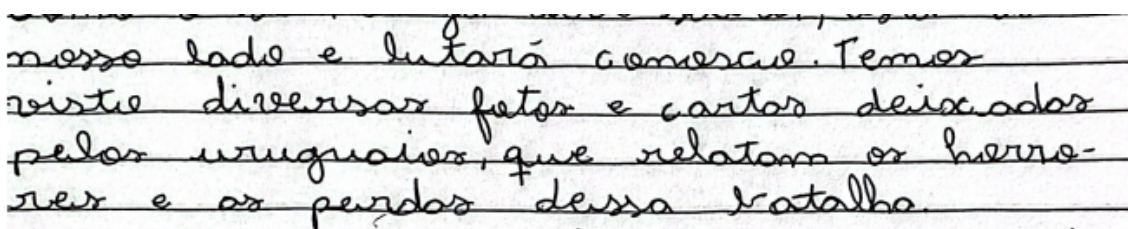 nosso lado e lutará conoscuo. Temos
visto diversas fotos e cartas deixadas
pelos uruguaios, que relatam os horro-
res e as perdas dessa batalha.